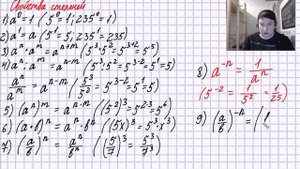 Свойства степеней
1) a⁰ = 1 (5⁰ = 1; 235⁰ = 1)
2) a¹ = a (5¹ = 5, 235¹ = 235)
3) aⁿ · aᵐ = aⁿ⁺ᵐ (5³ · 5² = 5³⁺² = 5⁵)
4) aⁿ : aᵐ = aⁿ⁻ᵐ (5³ : 5² = 5³⁻² = 5¹ = 5)
aⁿ/aᵐ = aⁿ⁻ᵐ (5³/5² = 5³⁻² = 5¹ = 5)
5) (aⁿ)ᵐ = aⁿ·ᵐ ((5²)³ = 5²·³ = 5⁶)
6) (a · b)ⁿ = aⁿ · bⁿ ((5x)³ = 5³ · x³)
7) (a/b)ⁿ = aⁿ/bⁿ ((5/7)³ = 5³/7³)
8) a⁻ⁿ = 1/aⁿ
(5⁻² = 1/5² = 1/25)
9) (a/b)⁻ⁿ = (